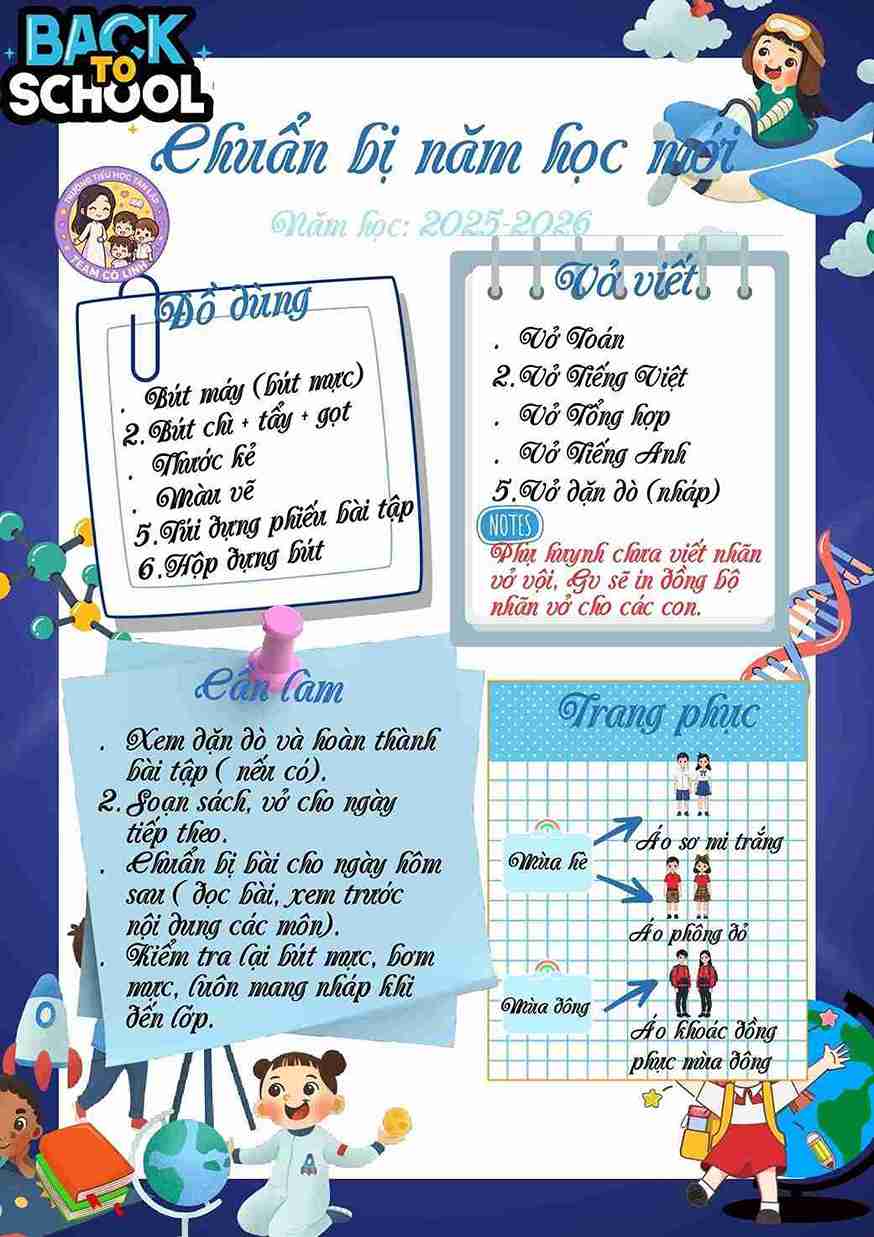 BACK
TO
SCHOOL
Chuẩn bị năm học mới
TRƯỜNG TIỂU HỌC TÂN LẬP
TEAM CÔ LINH
Năm học: 2025-2026
Đồ dùng
. Bút máy (bút mực)
2. Bút chì + tẩy + gọt
. Thước kẻ
. Màu vẽ
5. Túi đựng phiếu bài tập
6. Hộp đựng bút
Vở viết
. Vở Toán
2. Vở Tiếng Việt
. Vở Tổng hợp
. Vở Tiếng Anh
5. Vở dặn dò (nháp)
NOTES
Phụ huynh chưa viết nhãn
vở vội, Gv sẽ in đồng bộ
nhãn vở cho các con.
Cần làm
. Xem dặn dò và hoàn thành
bài tập ( nếu có).
2. Soạn sách, vở cho ngày
tiếp theo.
. Chuẩn bị bài cho ngày hôm
sau ( đọc bài, xem trước
nội dung các môn).
. Kiểm tra lại bút mực, bơm
mực, luôn mang nháp khi
đến lớp.
Trang phục
Mùa hè
Áo sơ mi trắng
Áo phông đỏ
Mùa đông
Áo khoác đồng
phục mùa đông